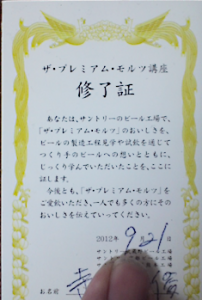 ザ・プレミアム・モルツ講座
修了証
あなたは、サントリーのビール工場で、
「ザ・プレミアム・モルツ」のおいしさを、
ビールの製造工程見学や試飲を通じて
つくり手のビールへの想いとともに、
じっくり学んでいただいたことを、ここに
証します。
今後とも、「ザ・プレミアム・モルツ」を
ご愛飲いただき、一人でも多くの方にその
おいしさを伝えていってください。
2012年 9月21日
サントリー武蔵野ビール工場
サントリー ビール工場
サントリー ビール工場
お名前